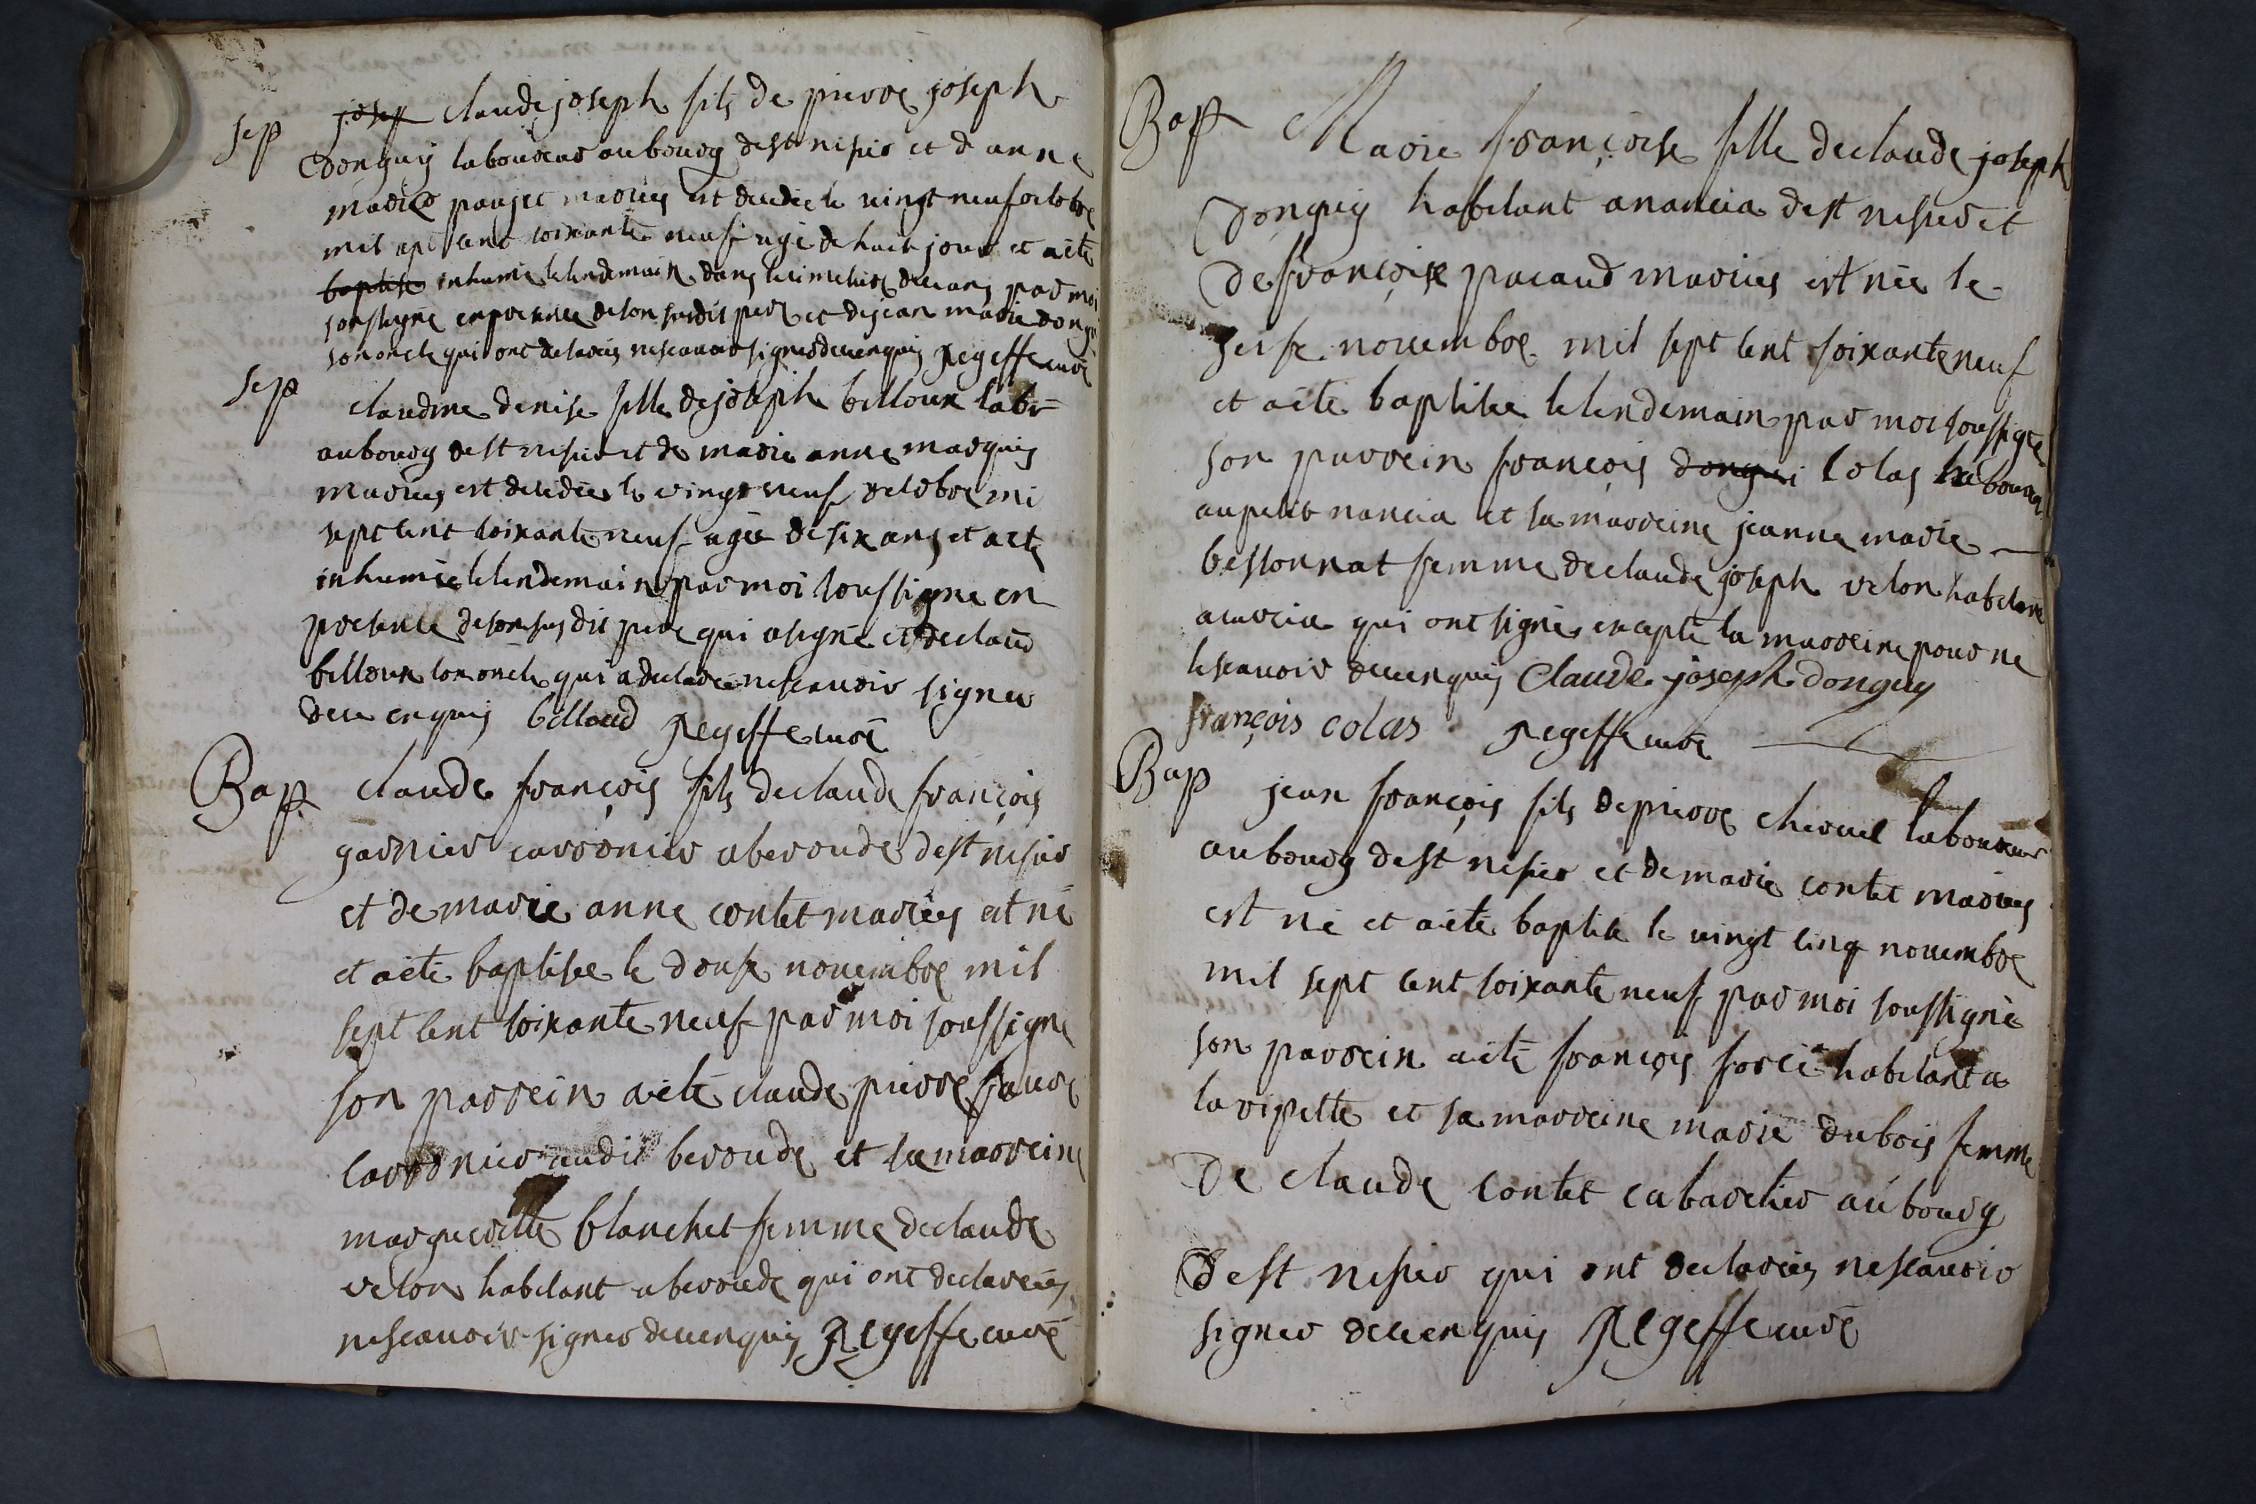 sep
josep claude joseph fils de pierre joseph
donguy laboureur au bourg de st nisier et d anne
marie paujet mariés est decedé le vingt neuf octobre
mil sept cent soixante neuf agé de huit jours et a été
baptisé inhumé le lendemain dans le cimetiere par moi
soussigné en presence de son susdit pere et de jean marie
son oncle qui ont declarés ne scavoir signer de ce enquis regeffe curé
sep
claudine denise fille de joseph billoux labr
au bourg de st nisier et de marie anne marquis
mariés est decedée le vingt neuf octobre mi
sept cent soixante neuf agée de six ans et a eté
inhumée le lendemain par moi soussigné en
presence de son susdit pere qui a signé et de claud
billoux son oncle qui a declaré ne scavoir signer
de ce enquis billoud regeffe curé
Bap
claude françois fils de claude françois
garnier carronier a beroude de st nisier
et de marie anne contet mariés est né
et a été baptisée le douse novembre mil
sept cent soixante neuf par moi soussigne
son parrein a eté claude pierre favre
carronier audit beroude et sa marreine
margueritte blanchet femme de claude
velon habitant a beroude qui ont declarés
ne scavoir signer de ce enquis regeffe curé
Bap
Marie françoise fille de claude joseph
donguy habitant a nancia de st nisier et
de françoise pacaud mariés est née le
seise novembre mil sept cent soixante neuf
et a été baptisée le lendemain par moi soussigné
son parrein françois dongui colas laboureur
au petit nancia et sa marreine jeanne marie
bessonnat femme de claude joseph velon habitant
qui ont signé excepté la marreine pour ne
le scavoir de ce enquis claude joseph donguy
françois colas regeffe curé
Bap
jean françois fils de pierre laboureur
au bourg de st nisier et de marie contet mariés
est né et a été baptisé le vingt cinq novembre
mil sept cent soixante neuf par moi soussigné
son parrein a eté françois habitant a
la ripette et sa marreine marie dubois femme
de claude contet cabaretier au bourg
de st nisier qui ont declarés ne scavoir
signer de ce enquis regeffe curé